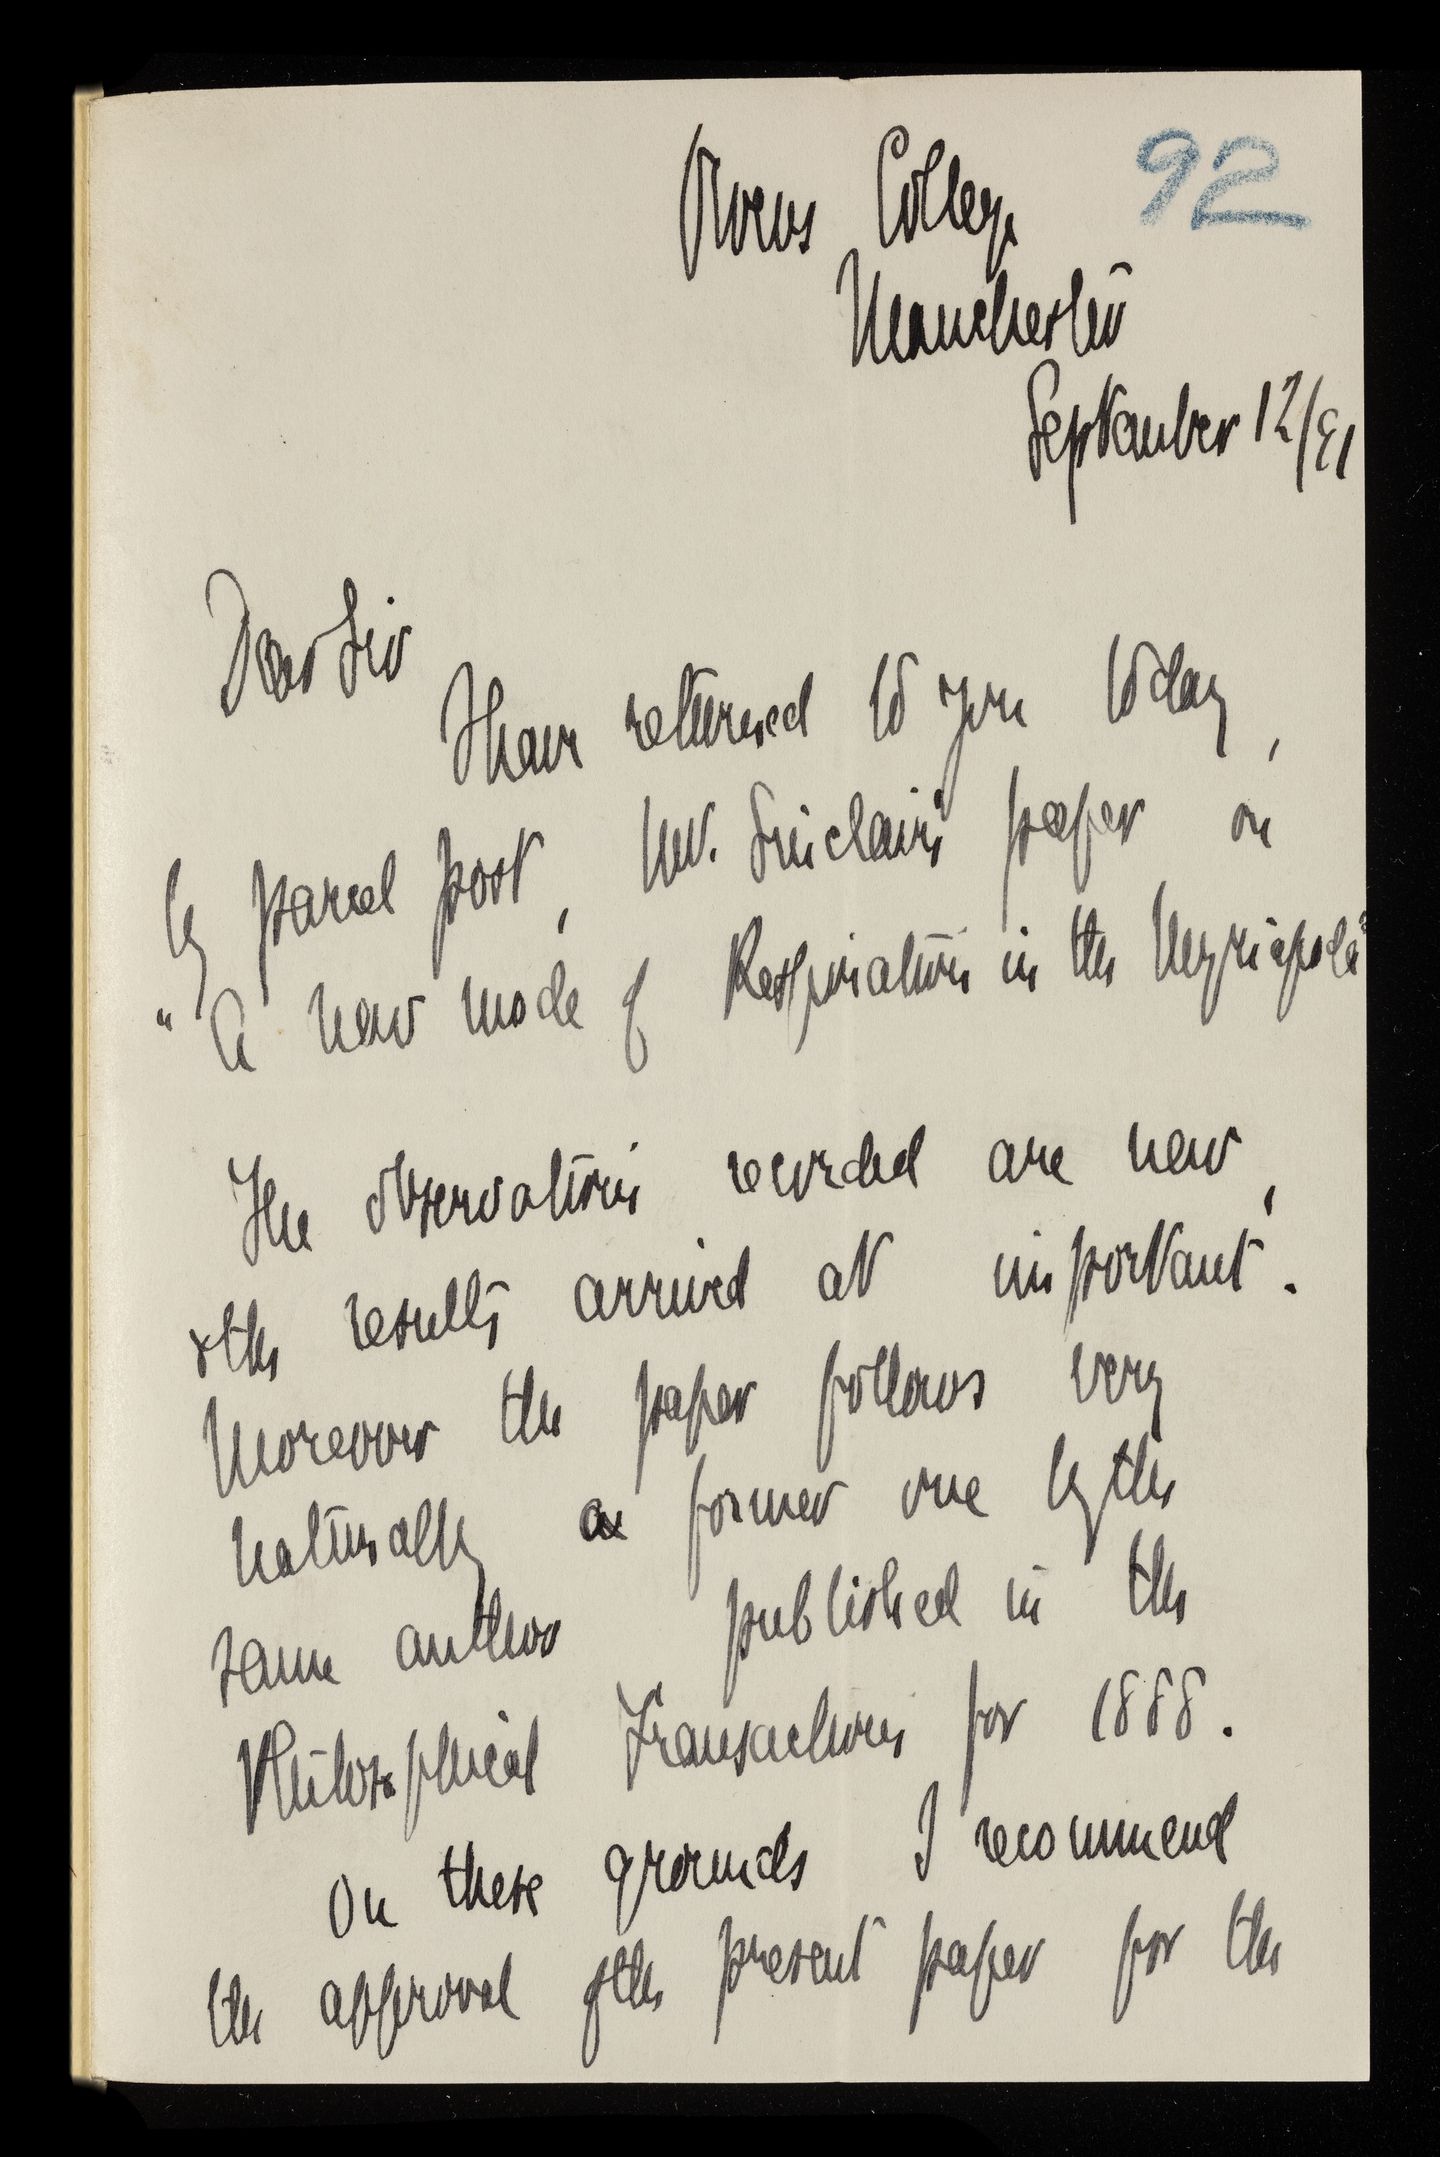 92
Owens College
Manchester
September 12/91
Dear Sir
I have returned to you today,
by parcel post, Mr. Sinclair's paper on
"A new mode of Respiration in the Myriapoda"
The observations recorded are new,
& the results arrived at important.
Moreover the paper follows very
naturally a former one by the
same author published in the
Philosophical Transactions for 1888.
On these grounds I recommend
the approval of the present paper for the